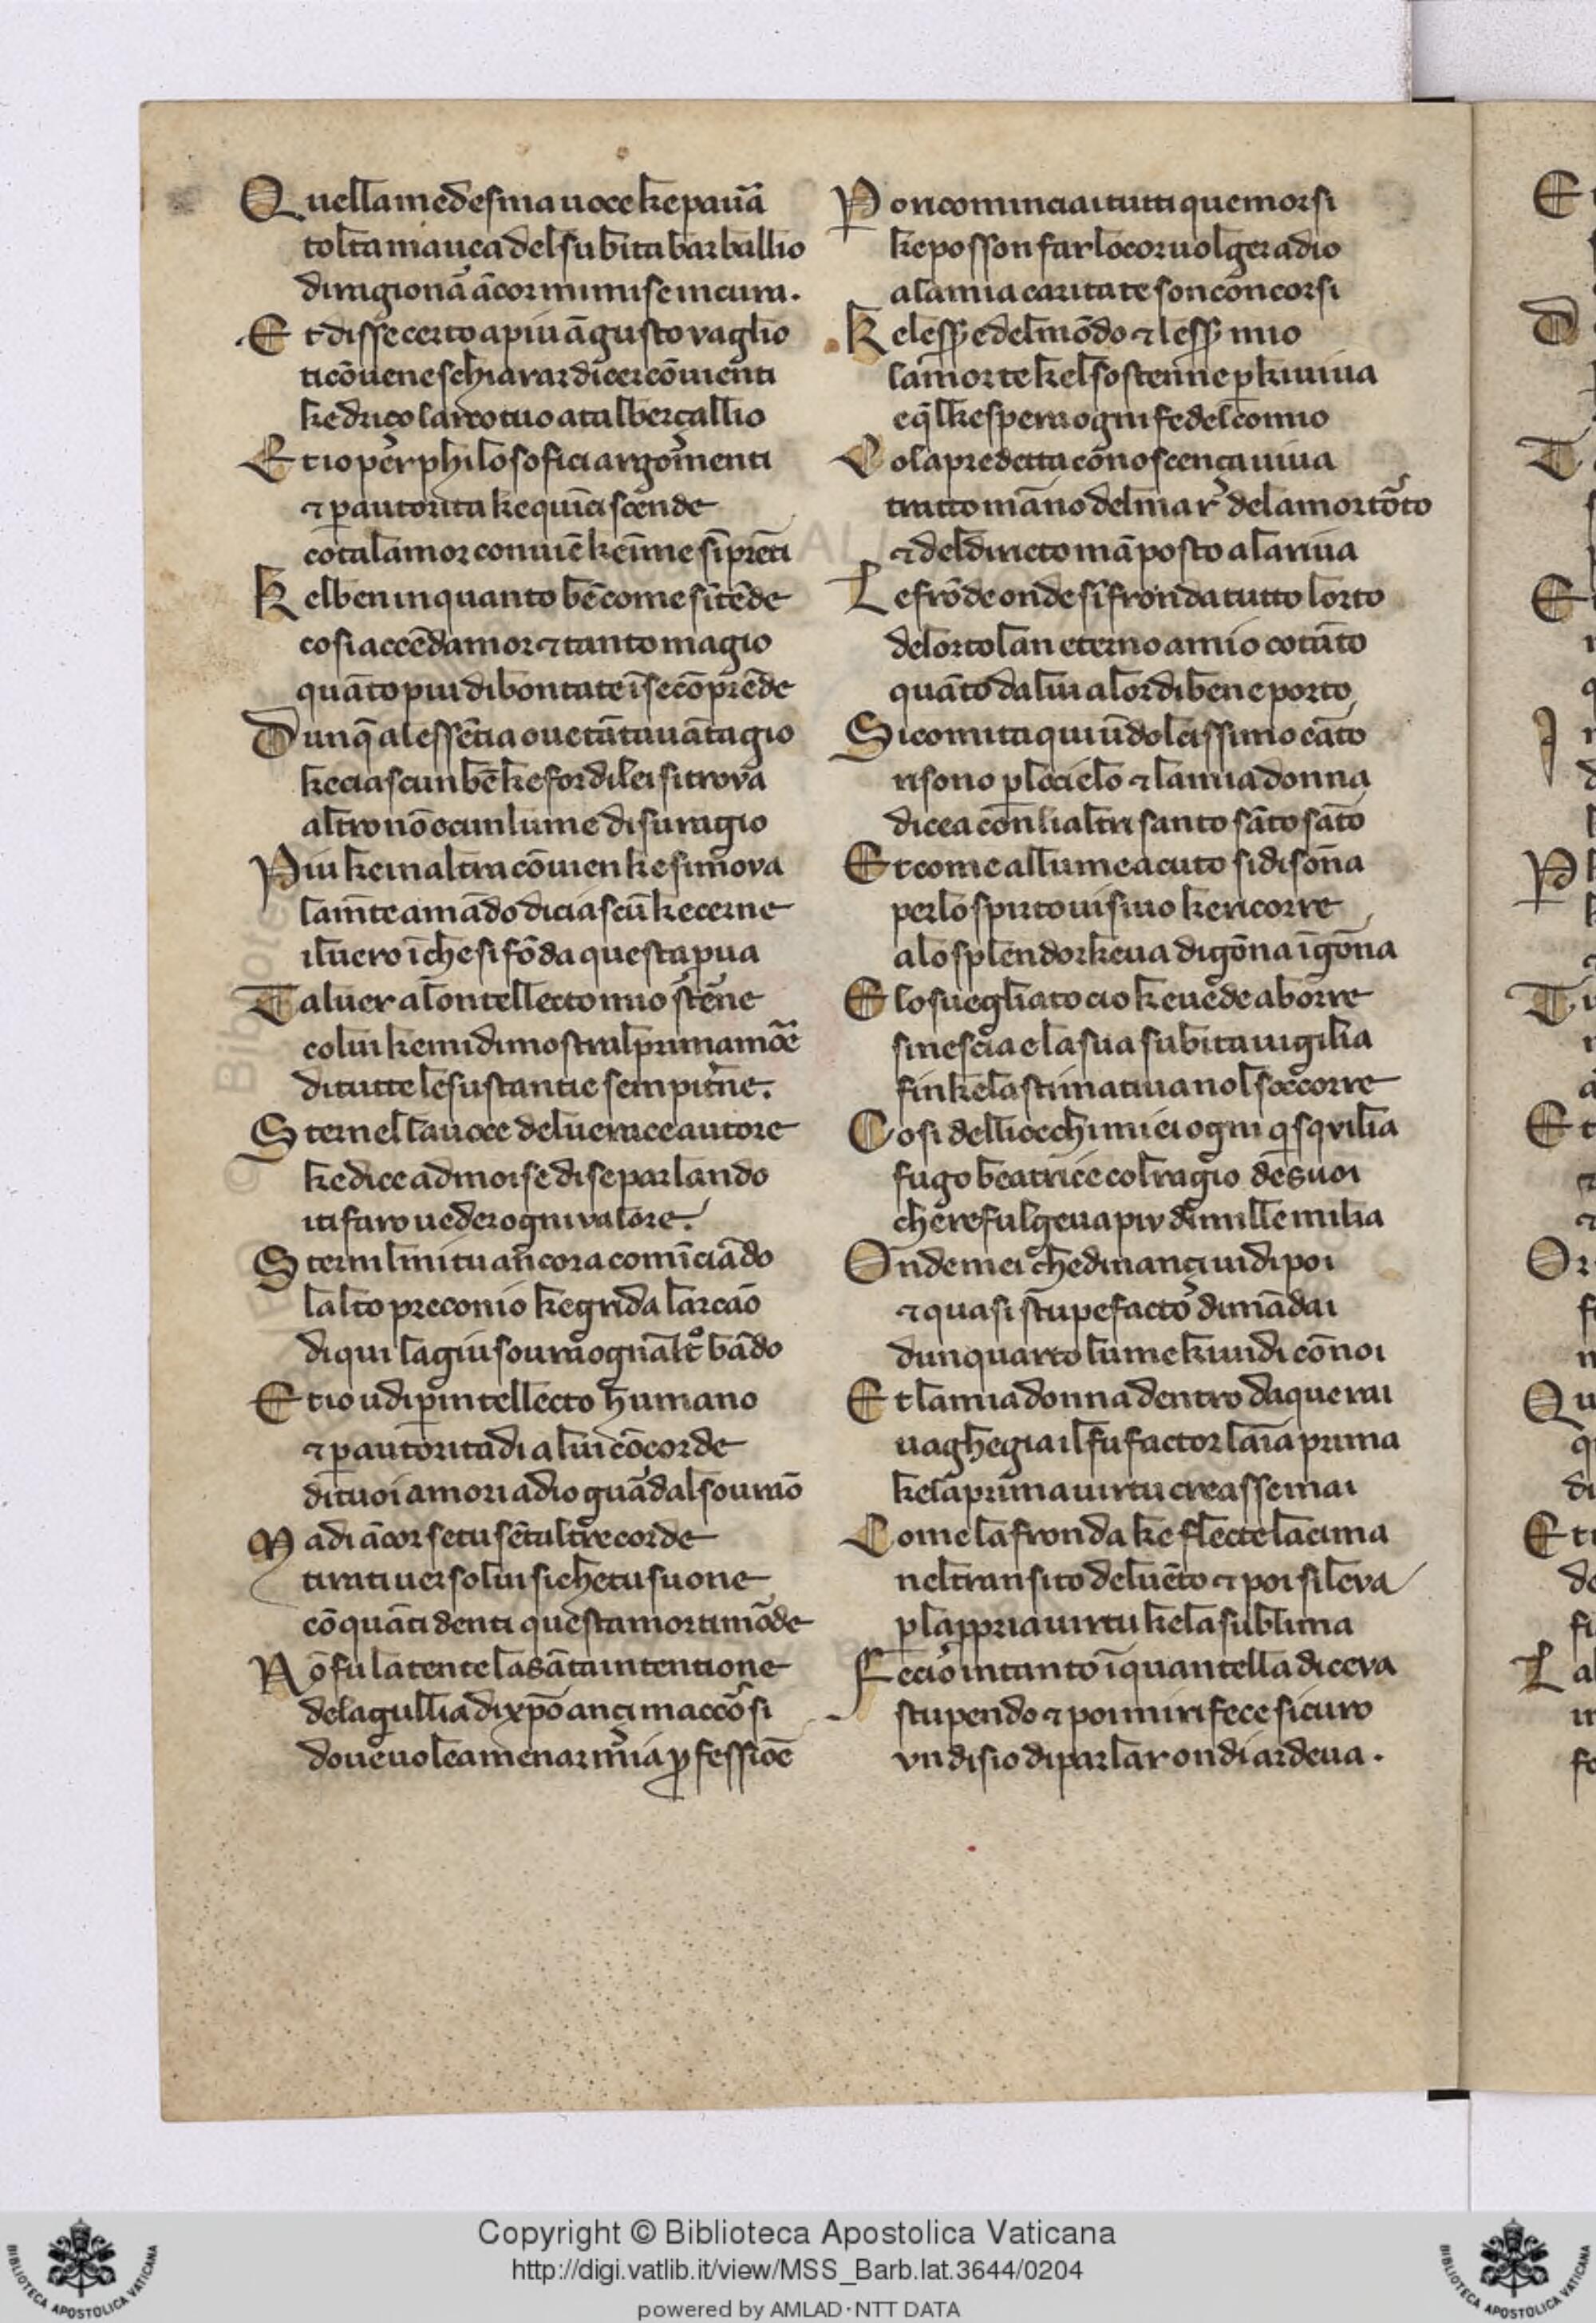 Quella medesma uoce ke paurã
tolta mauea del subita barballio
di ragionã ãcor mi mise in cura.
Et disse certo a piu ãgusto vaglio
ti cõuene schiarar dicer cõuienti
ke driço larco tuo a tal berçallio
Et io per philosofici argomenti
⁊ p autorita ke quinci scende
cotal amor conuiẽ keĩ me sĩprẽti
Kel ben in quanto bẽ come sĩtẽde
cosi accẽdamor ⁊ tanto magio
quãto piu di bontate ĩ se cõprẽde
Dunq̃ a lessẽcia oue tãtauãtagio
ke ciascun bẽ ke for di lei si trova
altro nõ ọcun lume di su ragio
Piu ke in altra cõuien ke si mova
la mẽte amãdo di ciascũ ke cerne
il uero ĩ che si fõda questa pua
Tal uer a lontellecto mio sterne
colui ke mi dimostral prim amoẽ
di tutte le sustantie sempitne.
Sternella uoce del uerace autore
ke dice ad moise di se parlando
i ti faro ueder ogni valore.
Sternilmi tu ancora comĩciãdo
lalto preconio ke grida larcão
di qui lagiu soura ogn altº bãdo
Et io udi p intellecto humano
⁊ p autorita di a lui cõcorde
di tuoi amori a dio guãdal sourão
Ma di ãcor se tu sẽtaltre corde
tirati uerso lui si che tu suone
cõ quãti denti questamor ti mõde
Nõ fu latente la sãta intentione
de lagullia di xpõ ançi maccõsi
doue uolea menar mia pfessiõe
Pon comĩciai tutti que morsi
ke posson far lo cor uolger a dio
a la mia caritate son concorsi
Ke lesse del mõdo ⁊ lesse mio
la morte kel sostenne p kiuiua
e q̃l ke spera ogni fedel comio
Cola predetta conoscença uiua
tratto mãno del mar del amor tõto
⁊ del dirieto mã posto a la riua
Le frõde onde sĩfronda tutto lorto
de lortolan eterno amio cotãto
quãto da lui a lor di bene porto
Si comi taqui ũ dolcissimo cãto
risono p lo cielo ⁊ la mia donna
dicea con li altri santo sãto sãto
Et come al lume acuto si disonna
per lo spirto uisiuo ke ricorre
a lo splendor ke ua di gõna ĩ gõna
E lo suegliato cio ke uede aborre
si nescia e la sua subita uigilia
fin ke la stimatiua nol soccorre
Cosi dellioechi miei ogni qsqvilia
fugo beatrice col ragio de suoi
che refulgeua piv di mille milia
Onde mei che dinançi uidi poi
⁊ quasi stupefacto dimãdai
dun quarto lume kiuidi cõnoi
Et la mia donna dentro da que rai
uaghegia il fu factor laĩa prima
ke la prima uirtu creasse mai
Come la fronda ke flecte la cima
nel transito del uẽto ⁊ poi si leva
p la ppria uirtu ke la sublima
Fecio in tanto ĩ quantella diceva
stupendo ⁊ poi mi rifece sicuro
vn disio di parlar ondi ardeua.
Copyright © Biblioteca Apostolica Vaticana
http://digi.vatlib.it/view/MSS_Barb.lat.3644/0204
powered by AMLAD·NTT DATA